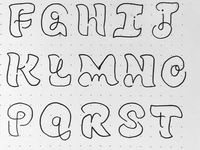 FGHIJ
KLMNO
PQRST